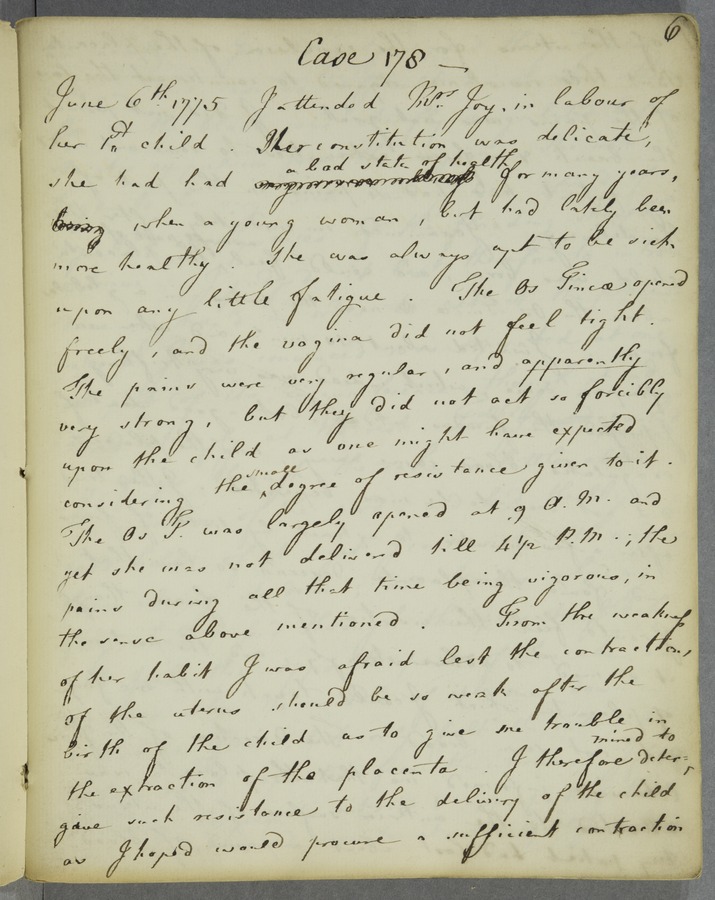 6
Case 178 —
June 6th 1775 I attended Mrs Joy, in labour of
her 1st child . Her constitution was delicate,
a bad state of health
she had had for many years,
when a young woman, but had lately been
more healthy . She was always apt to be sick
upon any little fatigue . The Os Tincæ opened
freely, and the vagina did not feel tight .
The pains were very regular, and apparently
very strong, but they did not act so forcibly
upon the child as one might have expected
considering the small degree of resistance given to it .
The Os T. was largely opened at 9 A.M. and
yet she was not delivered till 4 1/2 P.M.; the
pains during all that time being vigorous, in
the sense above mentioned . From the weakness
of her habit I was afraid lest the contractions,
of the uterus should be so weak after the
birth of the child as to give me trouble in
the extraction of the placenta . I therefore deter-
mined to
give such resistance to the delivery of the child
as I hoped would procure a sufficient contraction